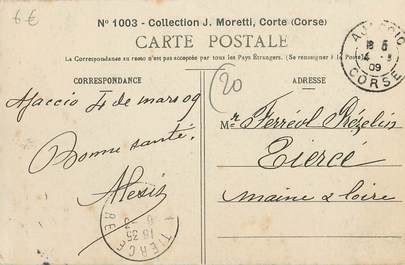 6€
Nº 1003 - Collection J. Moretti, Corte (Corse)
CARTE POSTALE
La Correspondance au recto n'est pas acceptée par tous les Pays Étrangers. (Se renseigner à la Poste)
CORRESPONDANCE
ADRESSE
20
Ajaccio 4 de mars 09
Bonne santé,
Alexis
Mr Ferréol
Tiercé
maine & loire
AJACCIO
09
CORSE
TIERCÉ
18 35